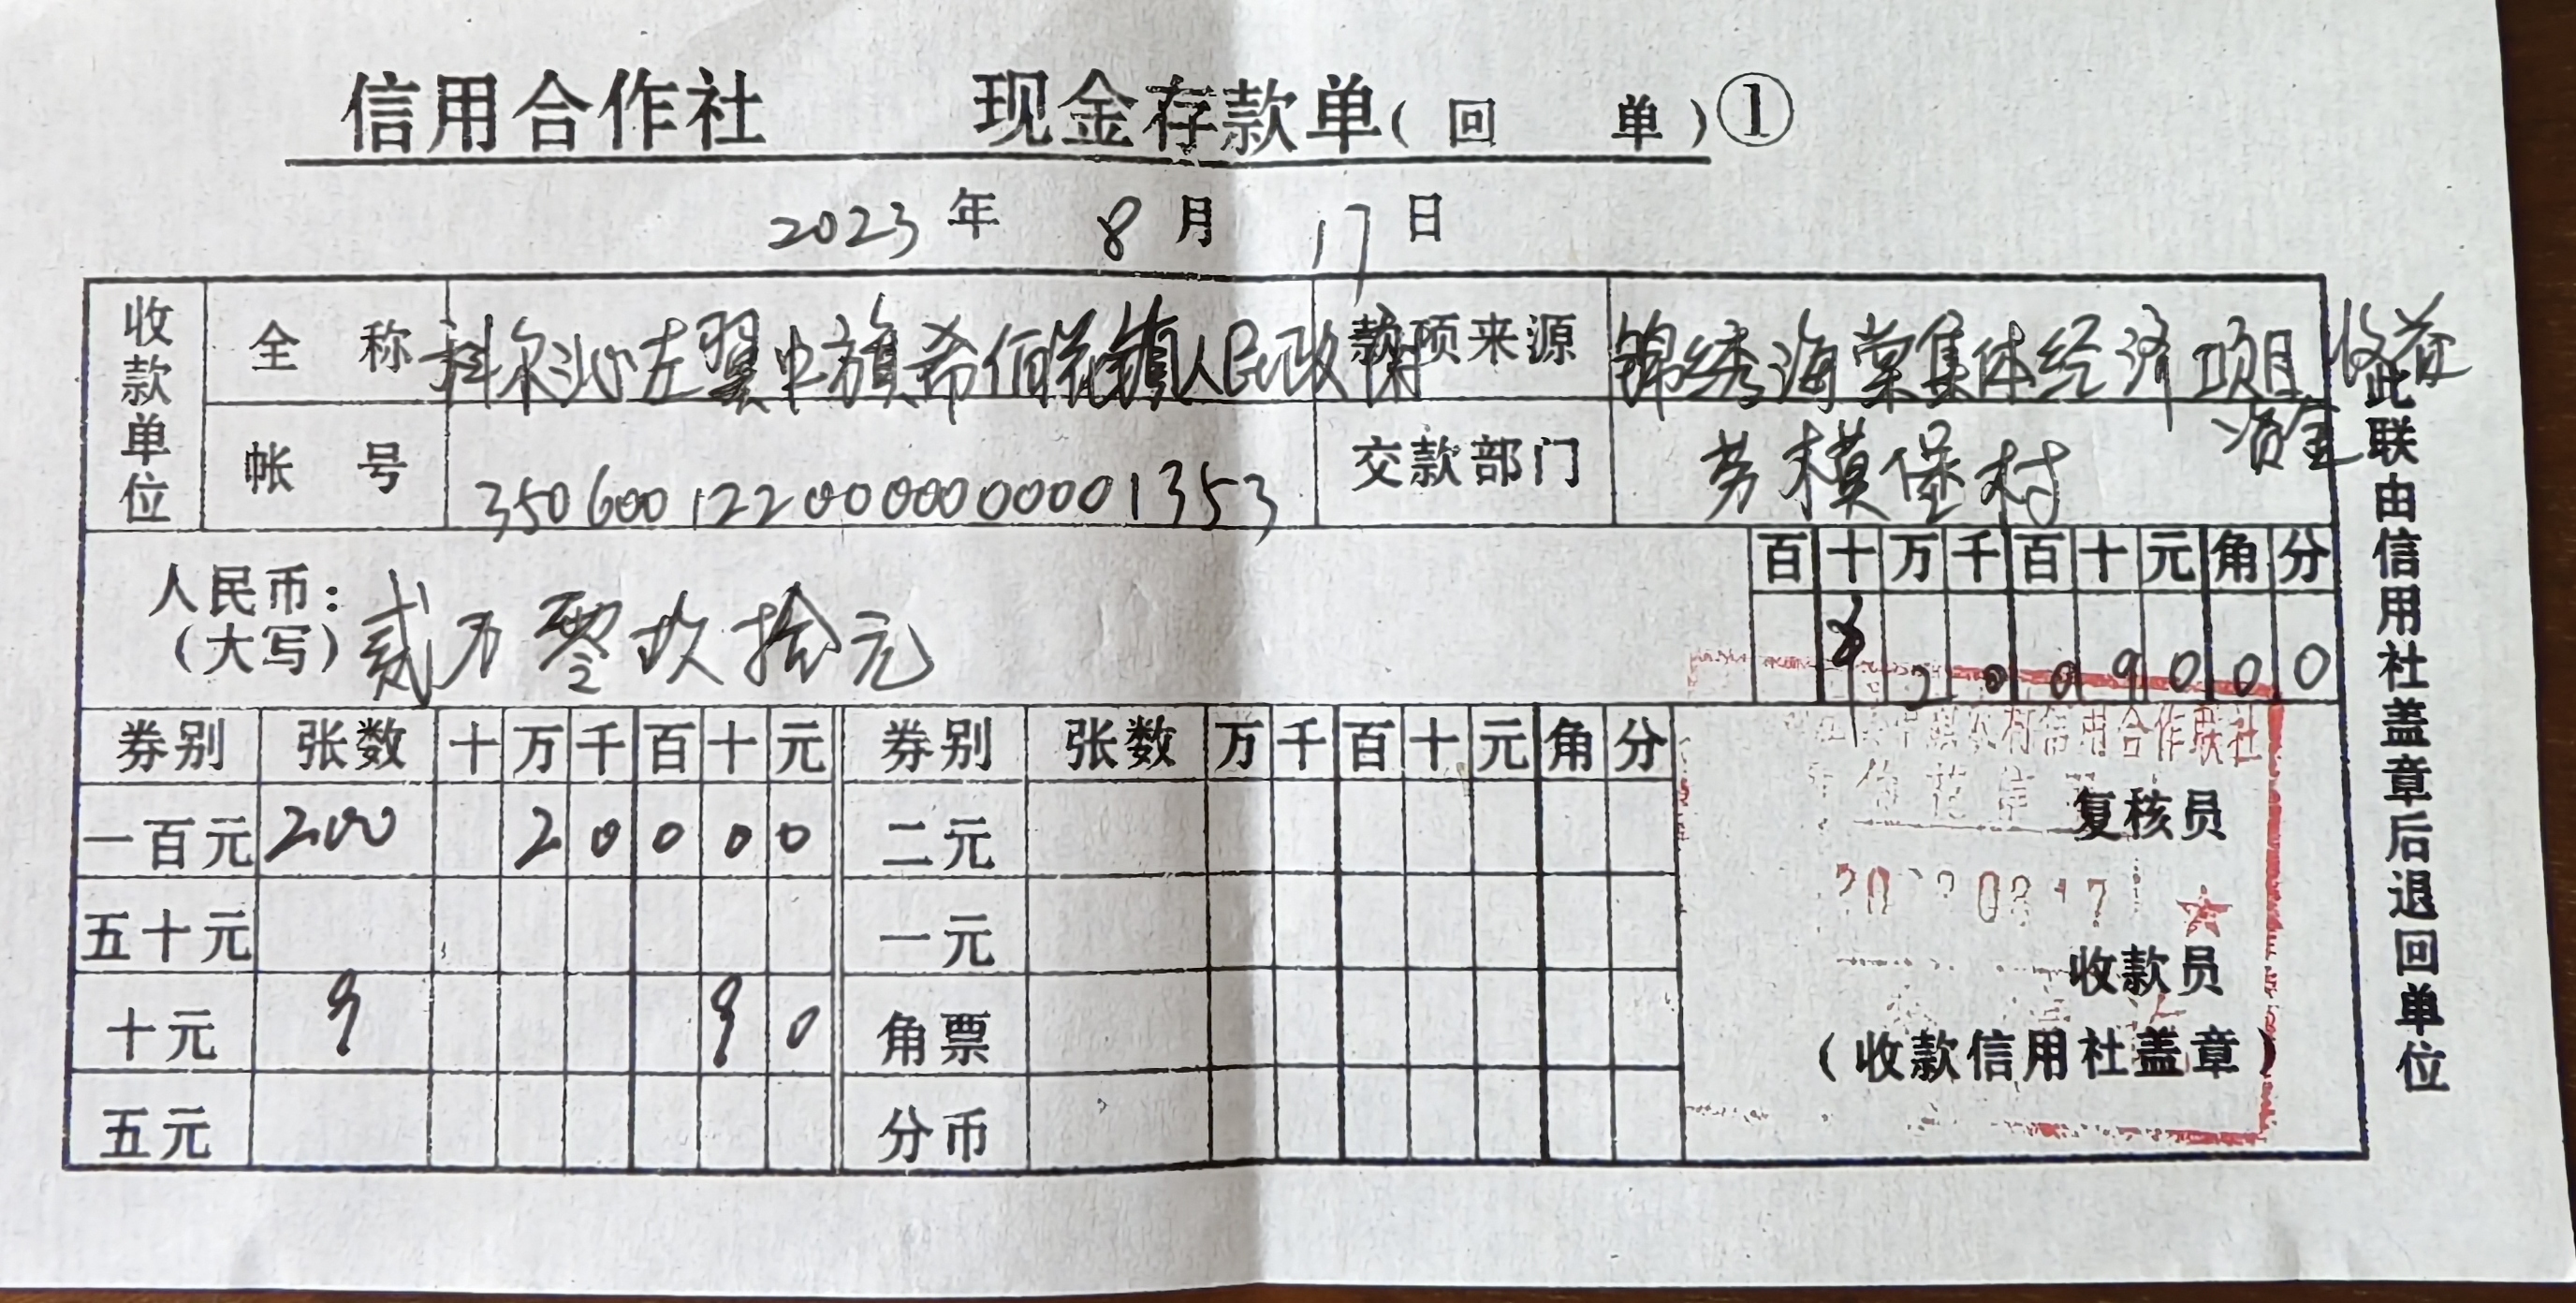 信用合作社 现金存款单(回 单)①
2023 年 8 月 17 日
收款单位 全 称 科尔沁左翼中旗希伯花镇人民政府 款项来源 锦绣海棠集体经济项目收益
资金
帐 号 3506001220000000001353 交款部门 劳模堡村
百 十 万 千 百 十 元 角 分
人民币:
(大写) 贰万零玖拾元 ¥ 2 0 0 9 0 0 0
券别 张数 十 万 千 百 十 元 券别 张数 万 千 百 十 元 角 分
一百元 200 2 0 0 0 0 二元
五十元 一元
十元 9 9 0 角票
五元 分币
村信用合作联社
复核员
收款员
(收款信用社盖章)
此联由信用社盖章后退回单位